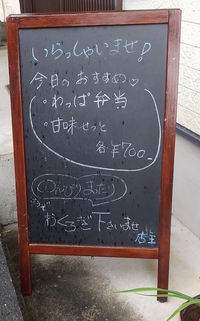 いらっしゃいませ!
今日のおすすめ♡
・わっぱ弁当
・甘味せっと
各¥700-
のんびりまったり
どうぞ
おくつろぎ下さいませ
店主